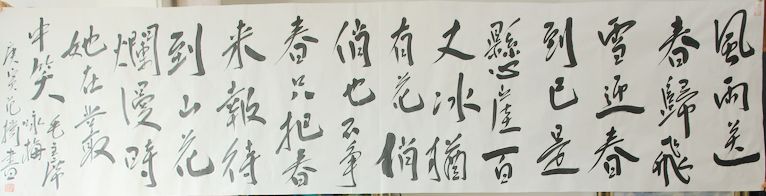 風雨送
春歸飛
雪迎春
到已是
懸崖百
丈冰猶
有花俏
俏也不爭
春只把春
來報待
到山花
爛漫時
她在叢
中笑
毛主席
咏梅
庚寅 書